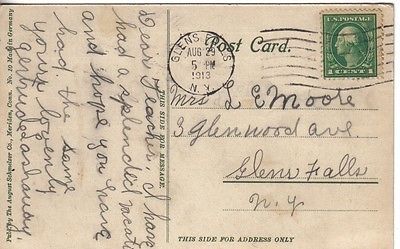 Post Card.
GLENS FALLS
AUG 29
5 PM
1913
N.Y.
U.S. POSTAGE
1 CENT 1
Mrs L E Moore
3 Glenwood ave
Glens Falls
N.Y.
THIS SIDE FOR ADDRESS ONLY
Dear Teacher, I have
had a splendid vacat
and hope you have
had the same
yours lovenly
THIS SIDE FOR MESSAGE.
Pub. by The August Schmelzer Co., Meriden, Conn. No. 10 Made in Germany